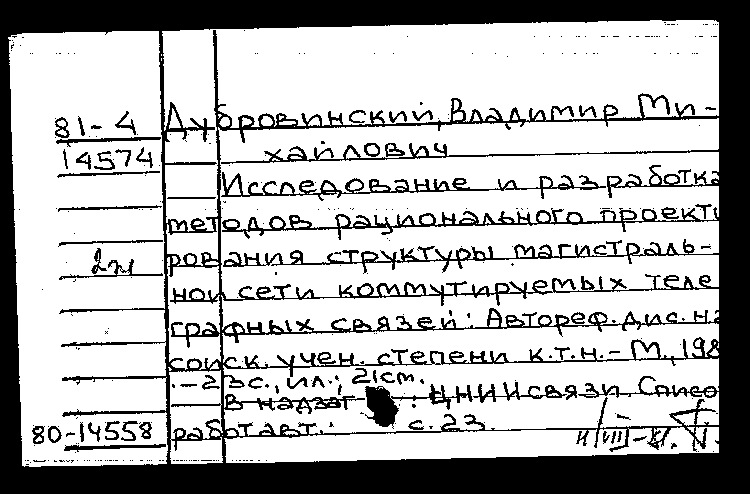 81-4 Дубровинский, Владимир Ми-
14574 хайлович
Исследование и разработка
методов рационального проекти
рования структуры магистраль-
2эк
ной сети коммутируемых теле
графных связей: Автореф. дис. на
соиск. учен. степени к.т.н. - М., 198
. - 23 с., ил.; 21 см.
В надзаг : ЦНИИ связи. Списо
80-14558 работ авт.: с. 23.